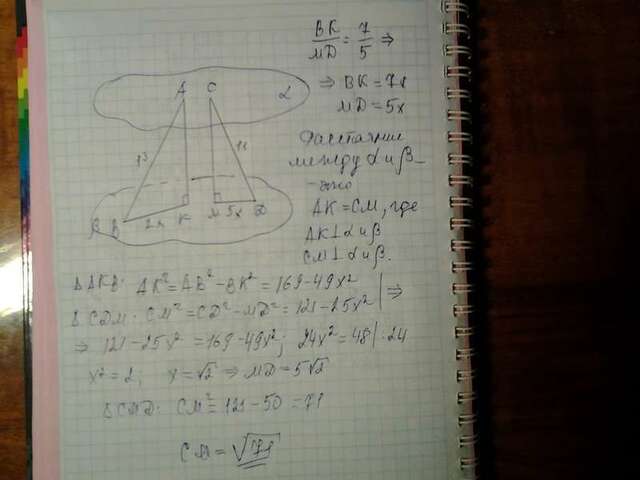 BK/MD = 7/5 ⇒
⇒ BK = 7x
MD = 5x
A C α
13 11
β B 7x K M 5x D
Расстояние
между α и β –
– это
AK = CM, где
AK ⊥ α и β
CM ⊥ α и β.
Δ AKB: AK² = AB² – BK² = 169 – 49x²
Δ CDM: CM² = CD² – MD² = 121 – 25x² | ⇒
⇒ 121 – 25x² = 169 – 49x²; 24x² = 48 | : 24
x² = 2; x = √2 ⇒ MD = 5√2
Δ CMD: CM² = 121 – 50 = 71
CM = √71